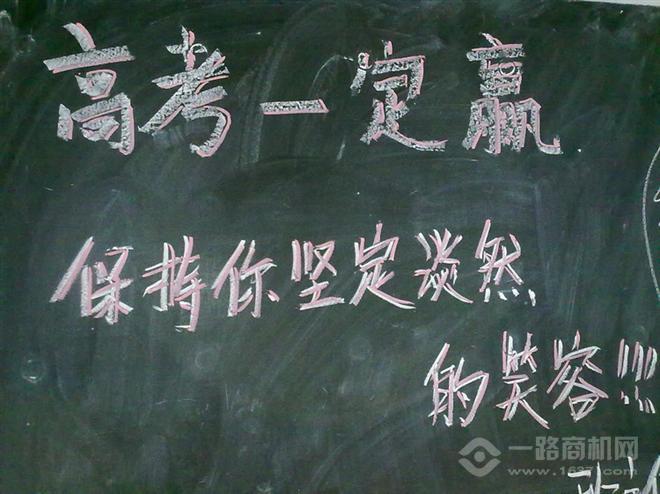 高考一定赢
保持你坚定淡然
的笑容!!!
一路商机网